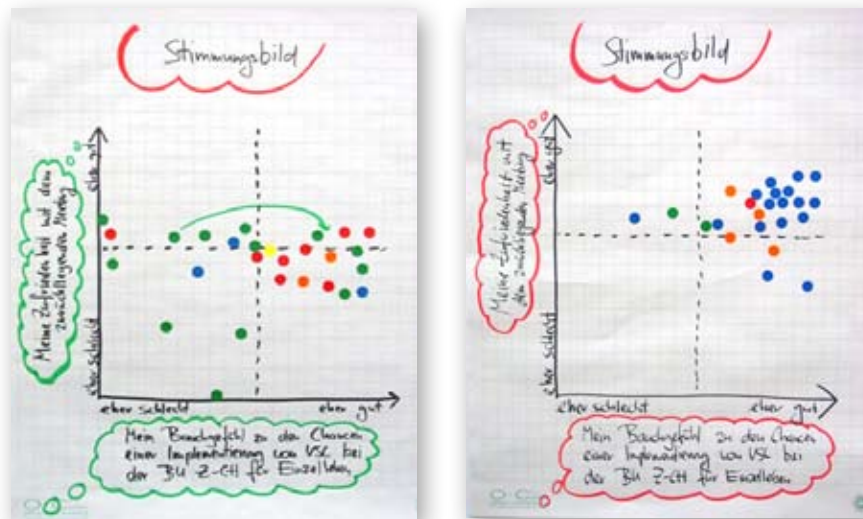 Stimmungsbild
eher gut
Meine Zufriedenheit mit dem
zurückliegenden Meeting
eher schlecht
eher schlecht
eher gut
Mein Bauchgefühl zu den Chancen
einer Implementierung von VSC bei
der BU Z-CH für Einzelleben
Stimmungsbild
eher gut
Meine Zufriedenheit mit
dem zurückliegenden Meeting
eher schlecht
eher schlecht
eher gut
Mein Bauchgefühl zu den Chancen
einer Implementierung von VSC bei
der BU Z-CH für Einzelleben